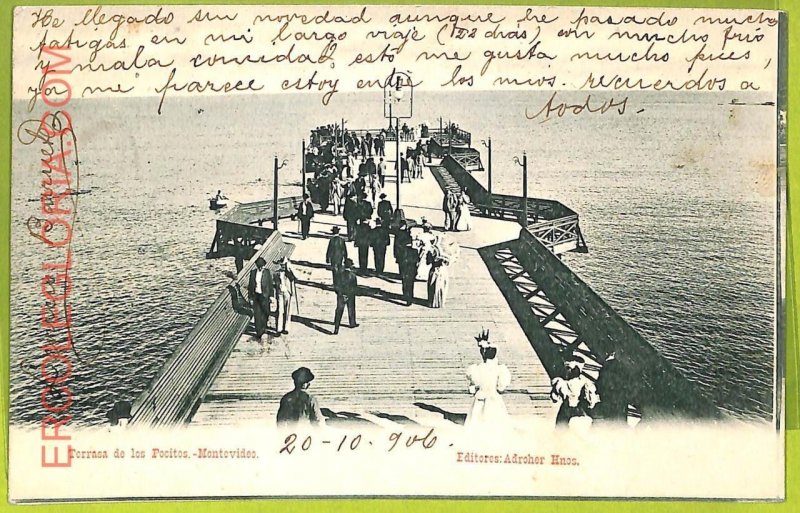 He llegado sin novedad aunque he pasado mucha
fatigas en mi largo viaje (22 dias) con mucho frio
y mala comida. esto me gusta mucho pues,
ya me parece estoy entre los mios. recuerdos a
todos.
20-10-906
Terrasa de los Pocitos.-Montevideo.
Editores: Adroher Hnos.
ERCOLEGLORIA.COM